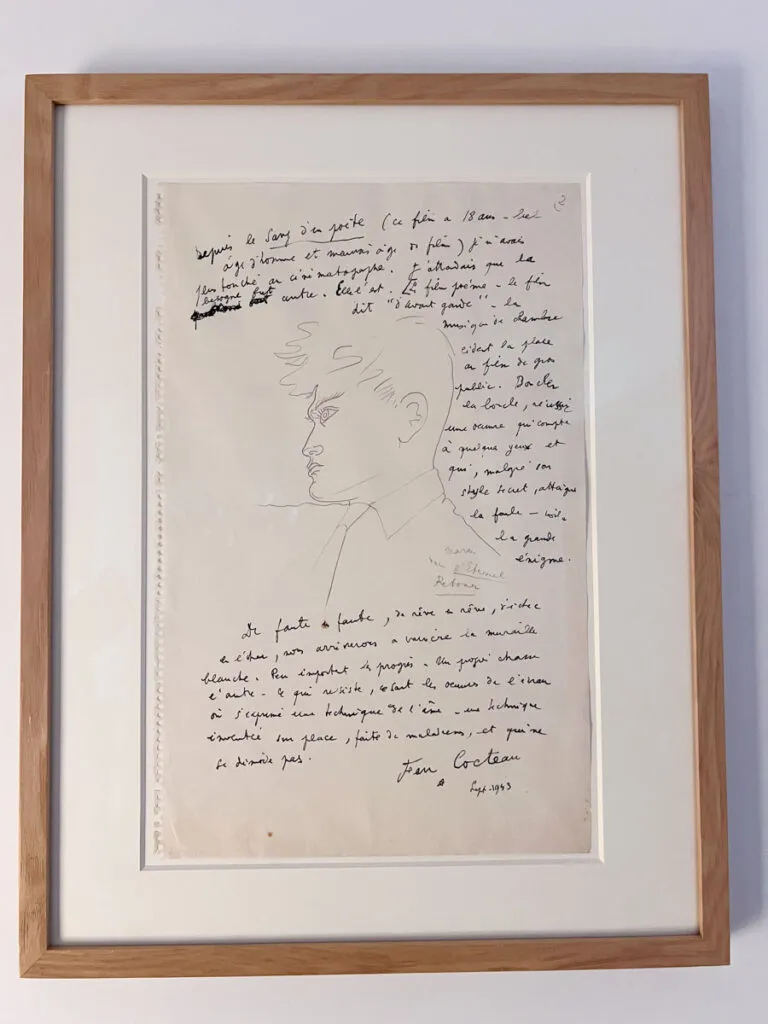 2
Depuis le Sang d'un poète (ce film a 18 ans - bel
âge d'homme et mauvais âge de film) je n'avais
plus touché au cinématographe. J'attendais que la
besogne fut autre. Elle l'est. Le film poème - le film
dit "d'avant garde" - la
musique de chambre
cèdent la place
au film de gros
public. Boucler
la boucle, réussir
une œuvre qui compte
à quelques yeux et
qui, malgré son
style secret, atteigne
la foule - voilà
la grande
énigme.
Marais
l'Eternel
Retour
De faute en faute, de rêve en rêve, d'échec
en échec, nous arriverons à vaincre la muraille
blanche. Peu importent les progrès - Un progrès chasse
l'autre - Ce qui résiste, ce sont les œuvres de l'écran
où s'exprime une technique de l'âme - une technique
inventée sur place, faite de maladresses, et qui ne
se démode pas.
Jean Cocteau
Sept. 1943